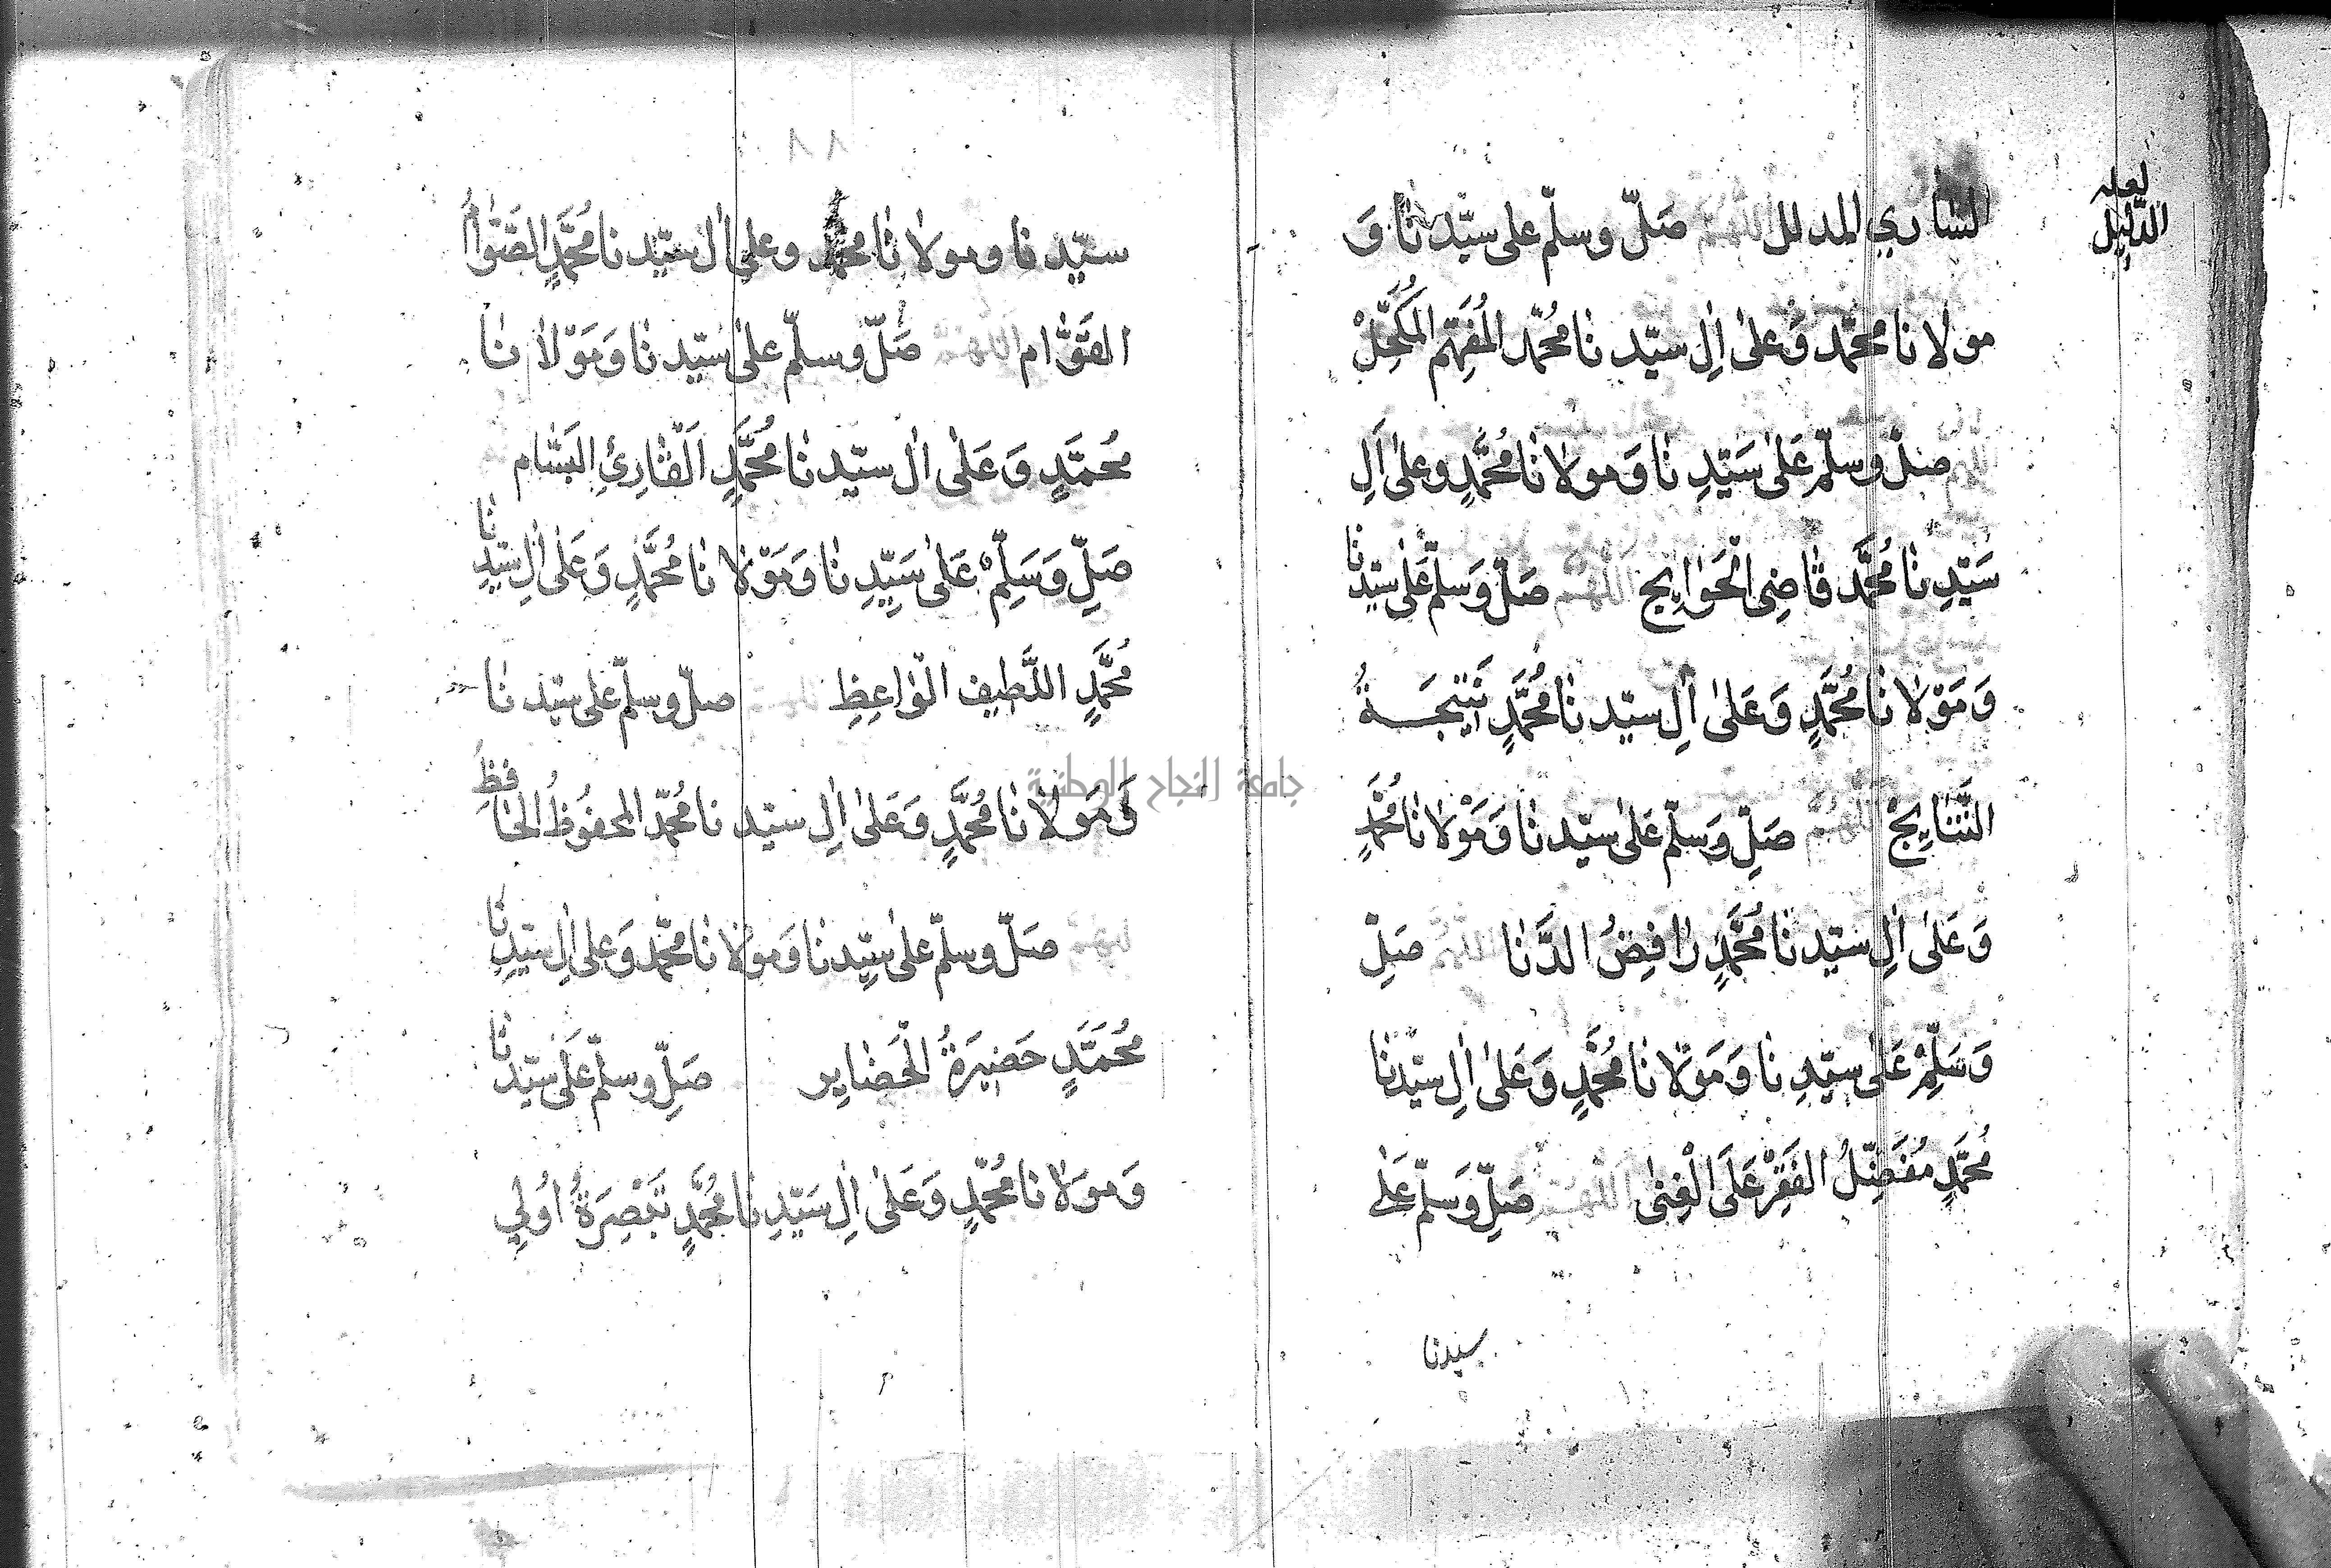 لعله
الدليل
الساري المدلل اللهم صلّ وسلّم على سيّدنا وَ
مولانا محمّد وَعلىٰ اٰلِ سيّدنا محُمّد المُفَهّم المُكَحَّلْ
اللهم صلّ وسلّم عَلىٰ سَيّدِنَا وَمولانَا مُحَمَّدٍ وعلىٰ اٰلِ
سَيّدِنَا مُحَمَّد قاضِى الْحَوَايِج اللهم صَلّ وَسلّم عَلىٰ سيّدِنَا
وَمَوْلانَا مُحَمَّدٍ وَعَلىٰ اٰلِ سيّدنَا مُحَمَّدٍ نَتيْجَــةُ
النَّتَايِجْ اللهم صَلِّ وَسلّم عَلىٰ سيّدنَا وَمَوْلانَا مُحَمَّدٍ
وَعَلىٰ اٰلِ سيّدنَا مُحَمَّدٍ رافِضُ الدَّنَا اللهم صَلِّ
وَسَلِّمْ عَلىٰ سيّدِنَا وَمَوْلانَا مُحَمَّدٍ وَعَلىٰ اٰلِ سيّدنَا
مُحَمَّدٍ مُفَضِّلُ الفَقِرْ عَلَى الْغِنىٰ اللهم صَلِّ وَسَلّم عَلىٰ
سيدنا
٨٨
سيّدنا ومولانَا محمد وعلى اٰل سيّدنا مُحَمَّدٍ الصَّوَّامُ
القَوَّام اللهم صَلّ وسلّم علىٰ سيّدنَا وَمَوْلانَا
مُحمَّدٍ وَعَلىٰ اٰل سيّدنَا مُحَمَّدٍ اَلْقَارِئِ البَسَّام
صَلِّ وَسَلِّمْ عَلىٰ سَيِّدِنَا وَمَوْلانَا مُحَمَّدٍ وَعَلىٰ اٰلِ سيّدِنَا
مُحَمَّدٍ اللَّطِيف الْوَاعِظِ صلّ وسلّم على سيّدنَا
وَمَولانَا مُحَمَّدٍ وَعَلىٰ اٰلِ سيّدنا مُحَمّد المحفُوظُ الحَافِظ
اللهم صَلّ وسلّم علىٰ سيّدنَا وَمَوْلانَا محَمّد وَعلى اٰلِ سيّدِنَا
مُحَمَّدٍ حَضيرَةُ الْحَضَايِر صَلِّ وسلّم عَلى سيّدنَا
وَمولانا مُحَمّدٍ وَعَلىٰ اٰلِ سَيّدِنَا مُحَمَّدٍ تَبْصِرَةُ اُولِي
جامعة النجاح الوطنية